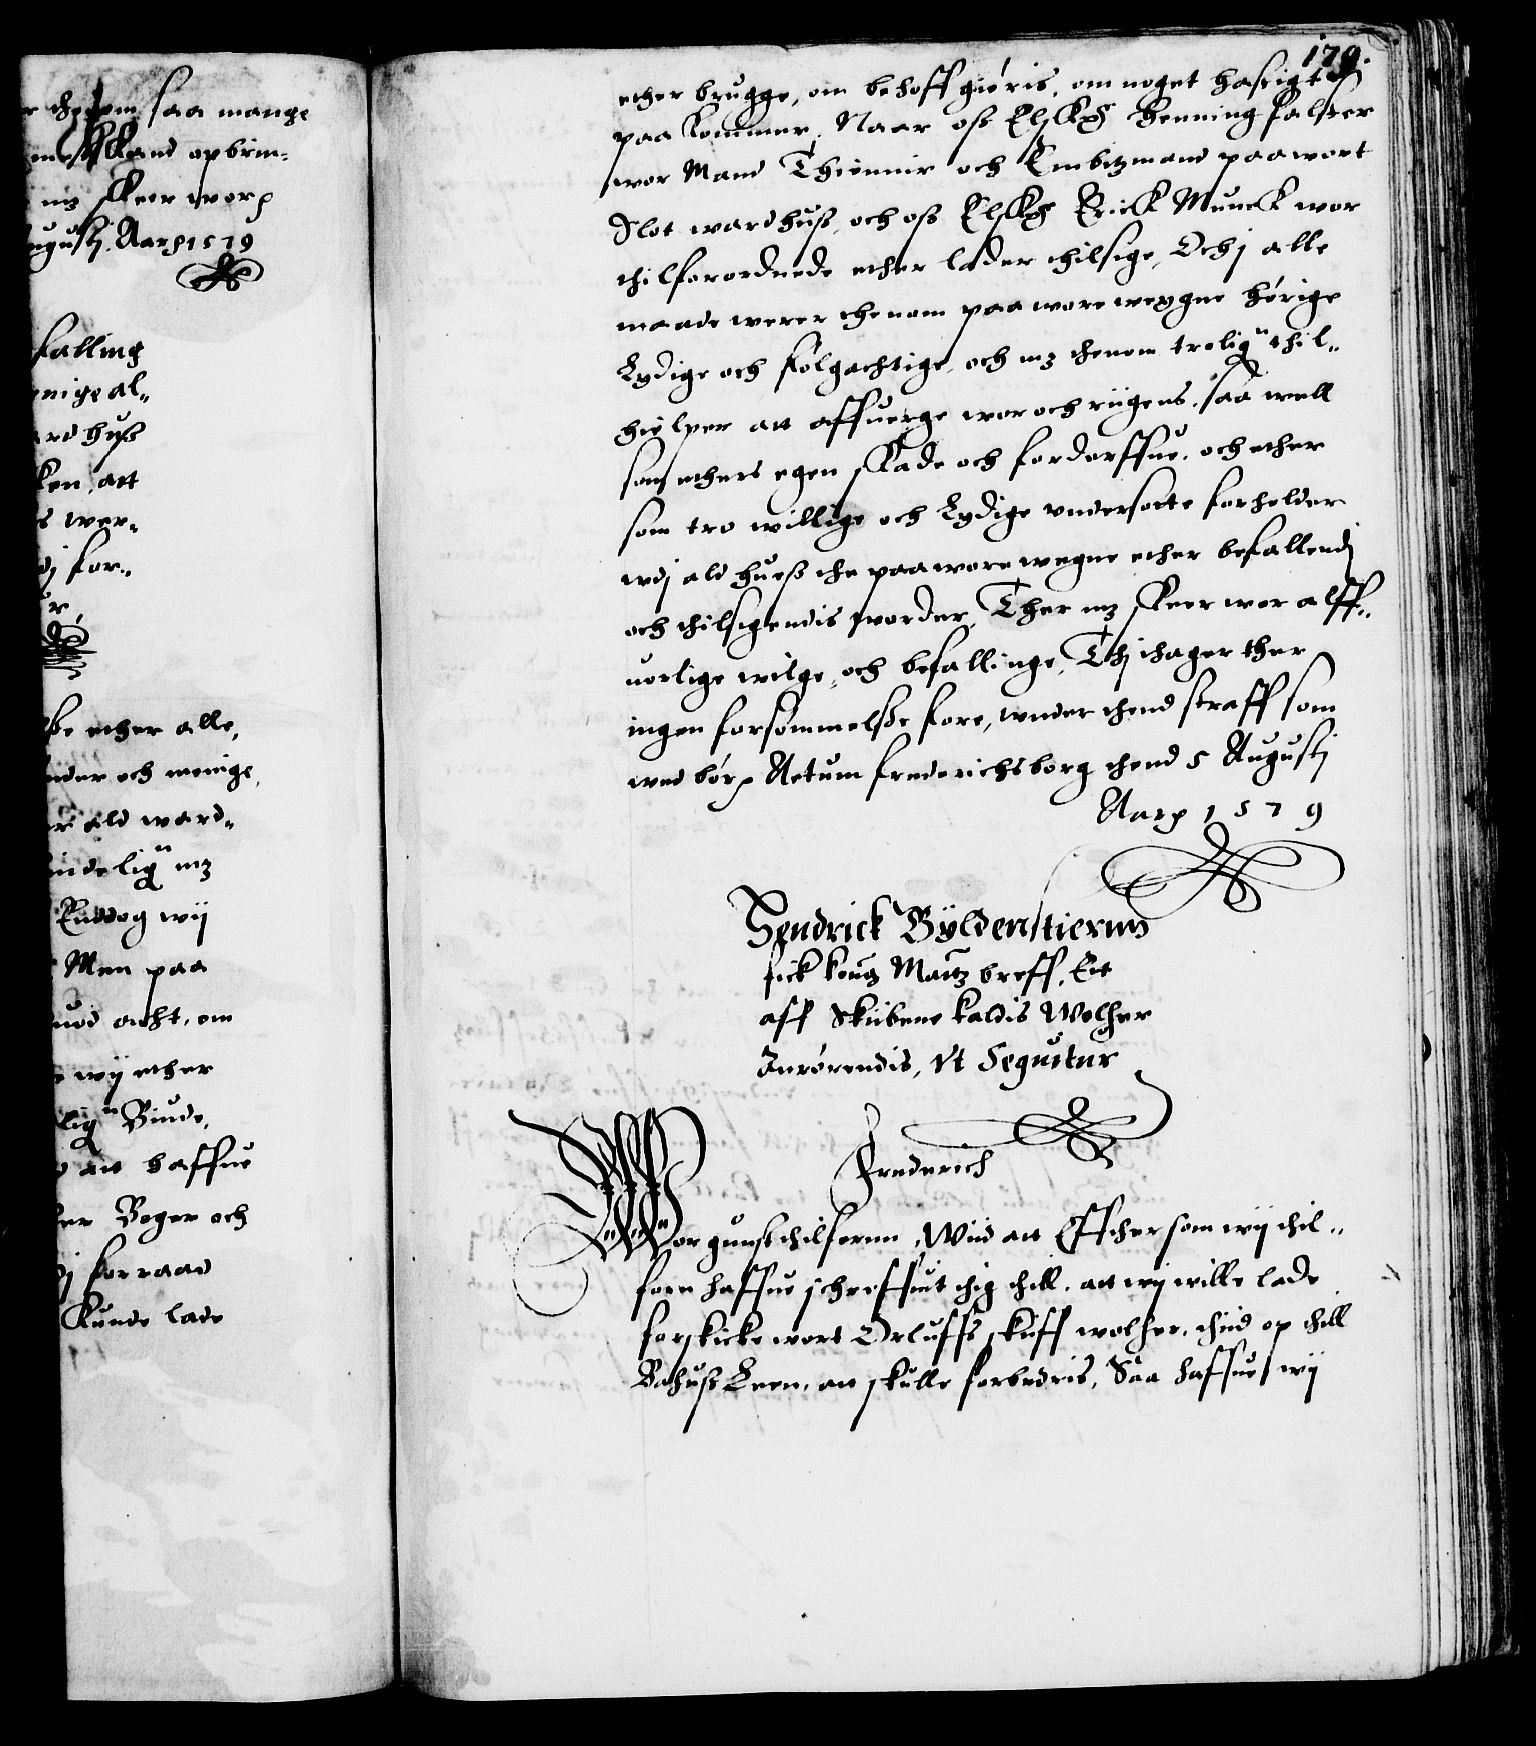 r thennom saa mange
mestskand opbrin-
mz skeer worp
ugustj. Aarp 1579
falling
enige al-
ard huss
ken, att
s wer-
dj for-
r
se ether alle,
nder och menige,
r ald ward-
indeligen mz
Enddog wij
Men paa
uod acht, om
e wij ether
ligen Biude,
att haffue
er Bøger och
j forraad
Kunde lade
179.
ether brugge, om behoff giøris, om noget hastigt
paa kommer, Naar oss Elskp Henning falster
wor Mand Thienner och Embitzmand paa wort
Slot wardhuss, och oss Elskp Erick Munck wor
thilforordnede ether lader thilsige, Och j alle
maade werer thenom paa wore weygne hørige
Lydige och følgachtige, och mz thenom troligen thil-
hielper att affuerge wor och riigens, saa well
som ethers egen skade och forderffue, och ether
som tro willige och Lydige undersotte forholder
wdj ald huess the paa wore wegne ether befallendj
och thilsigendis worder, Ther mz skeer wor alff-
uorlige wilge, och befallinge, Thj thager ther
ingen forsømmelse fore, wnder thend straff som
wed børp Actum frederichsborg thend 5 Augustj
Aarp 1579
Hendrick Gÿldenstiernn
fick kong Maitz breff, Ett
aff Skibene kaldis Wolher
Inrørendis, Vt Sequitur
Frederich
Wor gunst thilfornn, Wiid att Effther som wij thil-
forn haffue schreffuit thig thill, att wij wille lade
forskicke wort Orluffs skiff wolher, thiid op thill
Bahuss Leen, att skulle forbedris, Saa haffue wij